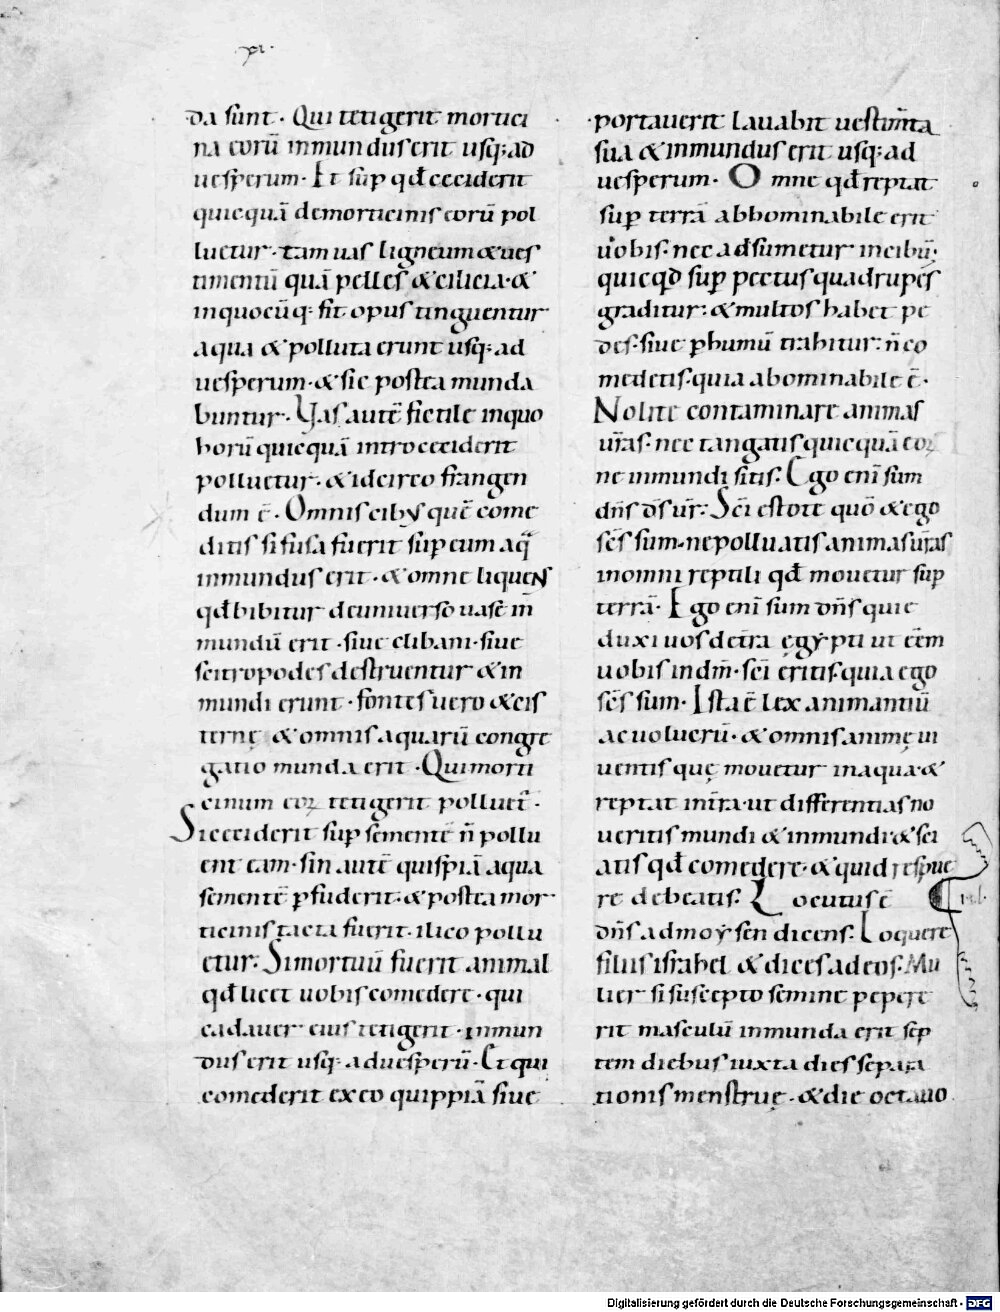 ·xi·
da sunt · Qui tetigerit mortici
na eorū inmundus erit usq; ad
uesperum · Et sup qđ ceciderit
quicquā de morticinis eorū pol
luetur · tam uas ligneum & ues
timentū quā pelles & cilicia · &
inquocūq; fit opus tinguentur
aqua & polluta erunt usq; ad
uesperum · & sic postea munda
buntur · Vas autē fictile inquo
horū quicquā intro ceciderit
polluetur · & idcirco frangen
dum ē · Omnis cibus quē come
ditis si fusa fuerit sup eum aq̄
inmundus erit · & omne liquens
qđ bibitur de uniuerso uase in
mundū erit · siue clibani · siue
scitropodes destruentur & in
mundi erunt · fontes uero & cis
ternę & omnis aquarū congre
gatio munda erit · Qui morti
cinum eoꝝ tetigerit polluet̄ ·
Si ceciderit sup sementē n̄ pollu
ent eam · sin autē quispiā aqua
sementē ꝑfuderit · & postea mor
ticinis tacta fuerit · ilico pollu
etur · Si mortuū fuerit animal
qđ licet uobis comedere · qui
cadauer eius tetigerit · inmun
dus erit usq; ad uesperū · Et qui
comederit ex eo quippiā siue
portauerit lauabit uestim̄ta
sua & inmundus erit usq; ad
uesperum · Omne qđ reptat
sup terrā abhominabile erit
uobis · nec adsumetur in cibū ·
quicqđ sup pectus quadrupes
graditur · & multos habet pe
des · siue ꝑ humū trahitur · n̄ co
medetis · quia abominabile ē ·
Nolite contaminare animas
ur̄as · nec tangatis quicquā eoꝝ
ne inmundi sitis · Ego enī sum
dn̄s ds̄ ur̄ · Sc̄i estote quō & ego
sc̄s sum · ne polluatis animas ur̄as
in omni reptili qđ mouetur sup
terrā · Ego enī sum dn̄s qui e
duxi uos de tr̄ra ęgypti ut ēēm
uobis in dm̄ · sc̄i eritis quia ego
sc̄s sum · Ista ē lex animantiū
ac uolucrū · & omnis animę ui
uentis quę mouetur in aqua · &
reptat in tr̄ra · ut differentias no
ueritis mundi & inmundi · & sci
atis qđ comedere · & quid respue
re debeatis · Locutus ē
dn̄s ad moysen dicens · Loquere
filiis israhel & dices ad eos · Mu
lier si suscepto semine pepere
rit masculū inmunda erit sep
tem diebus iuxta dies separa
tionis menstruę · & die octauo
Digitalisierung gefördert durch die Deutsche Forschungsgemeinschaft · DFG